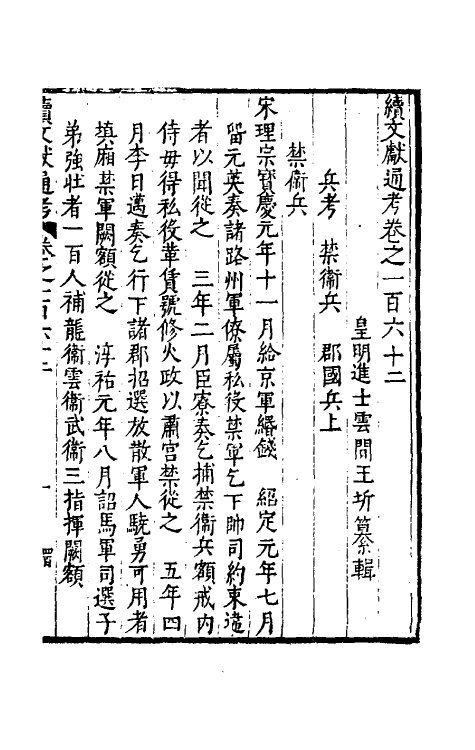 續文獻通考卷之一百六十二
皇明進士雲間王圻纂輯
兵考　禁衞兵　郡國兵上
禁衞兵
宋理宗寳慶元年十一月給京軍緡錢　紹定元年七月
留元英奏諸路州軍僚屬私役禁軍乞下帥司約束違
者以聞從之　三年二月臣寮奏乞補禁衞兵額戒内
侍毋得私役葺賃號修火政以肅宫禁從之　五年四
月李日邁奏乞行下諸郡招選放散軍人驍勇可用者
填廂禁軍闕額從之　淳祐元年八月詔馬軍司選子
弟強壯者一百人補龍衞雲衞武衞三指揮闕額
續文獻通考　卷之一百六十二　一